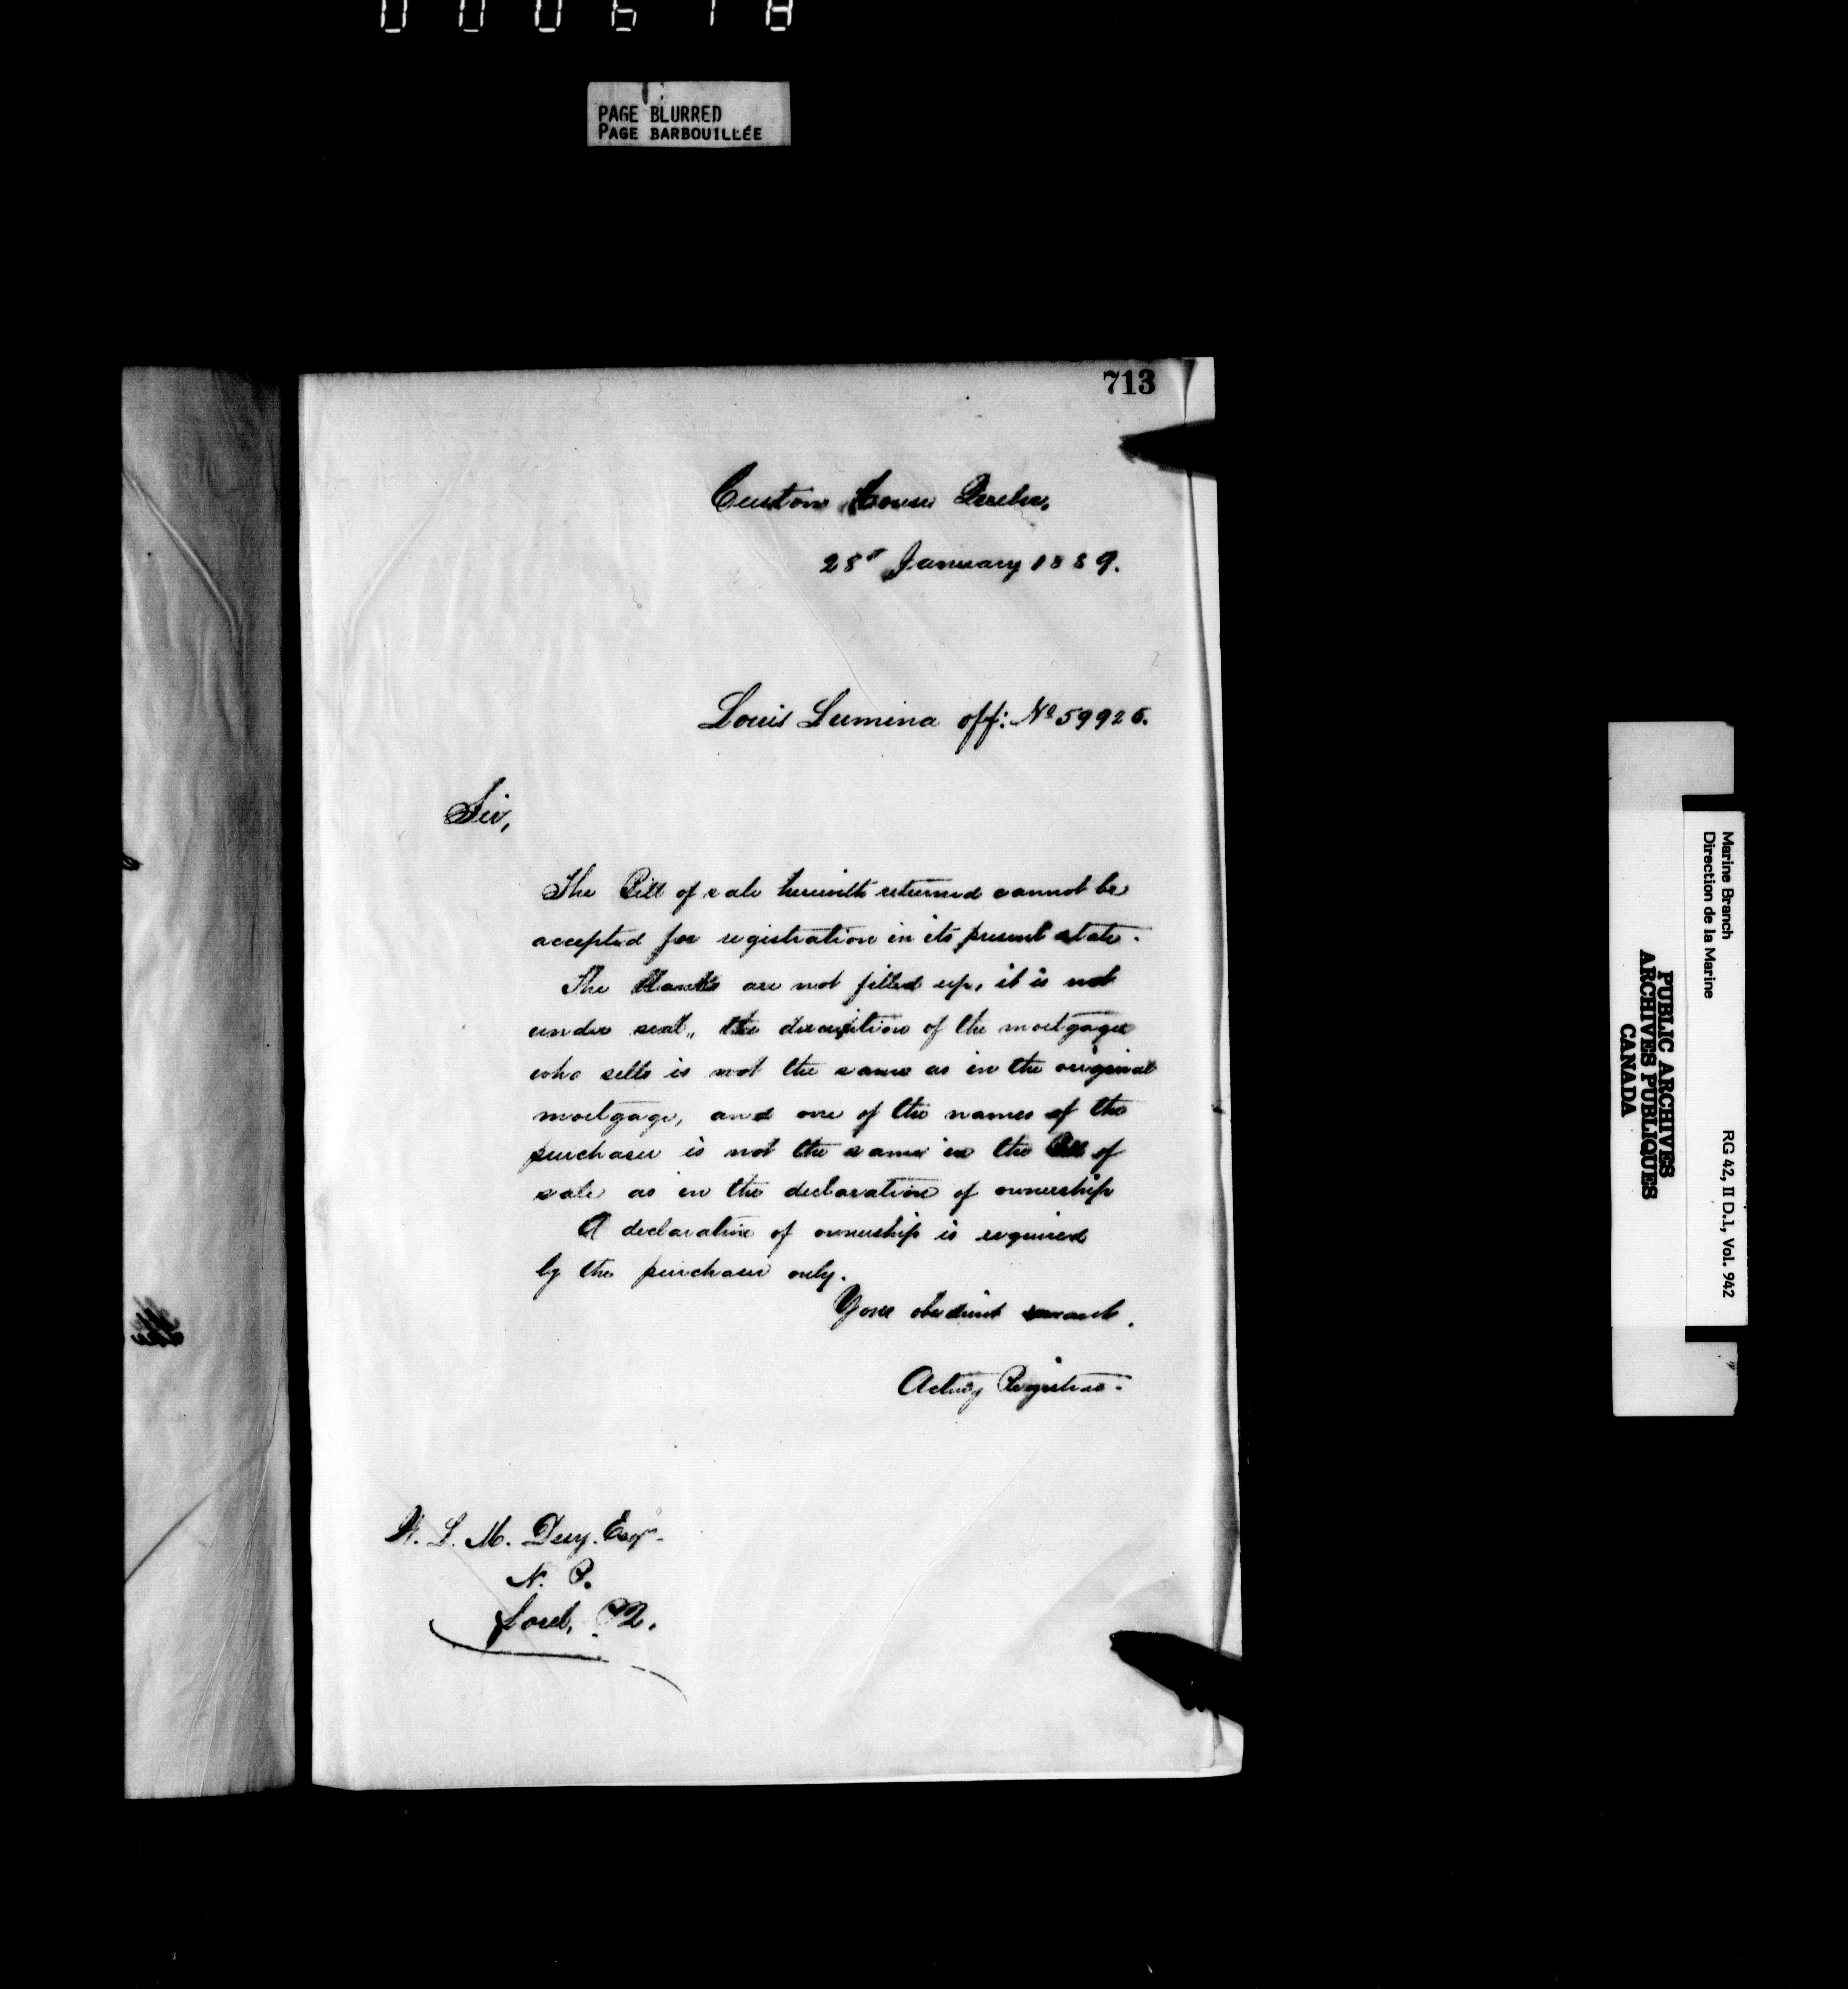 000618
PAGE BLURRED
PAGE BARBOUILLÉE
713
Custom House Quebec,
28th January 1889.
Louis Lumina off: No 59926.
Sir,
The Bill of sale herewith returned cannot be
accepted for registration in its present state.
The blanks are not filled up, it is not
under seal, the description of the mortgagee
who sells is not the same as in the original
mortgage, and one of the names of the
purchaser is not the same in the Bill of
sale as in the declaration of ownership
A declaration of ownership is required
by the purchaser only.
Your obedient servant.
Acting Registrar.
L. M. Esqr.
N. P.
Sorel, P.Q.
Marine Branch
Direction de la Marine
RG 42, II D.1, Vol. 942
PUBLIC ARCHIVES
ARCHIVES PUBLIQUES
CANADA